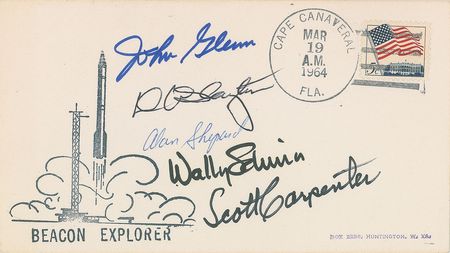 John Glenn
D K Slayton
Alan Shepard
Wally Schirra
Scott Carpenter
CAPE CANAVERAL
MAR
19
A.M.
1964
FLA.
BEACON EXPLORER
HUNTINGTON, W. VA.